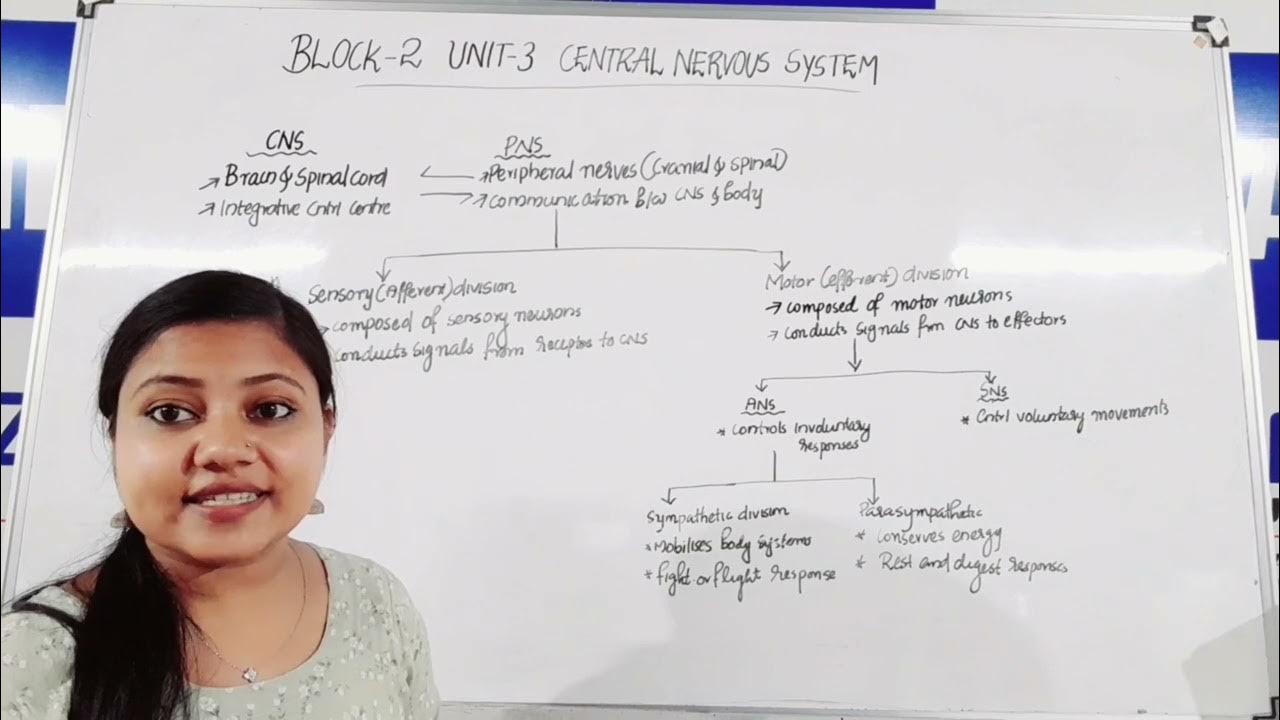 BLOCK-2 UNIT-3 CENTRAL NERVOUS SYSTEM
CNS
→ Brain & Spinal cord
→ Integrative Cntrl Centre
PNS
→ Peripheral nerves (Cranial & Spinal)
→ Communication B/w CNS & body
Sensory (Afferent) division
→ composed of sensory neurons
conducts signals from receptors to CNS
Motor (efferent) division
→ composed of motor neurons
→ conducts signals from CNS to effectors
ANS
* Controls involuntary
responses
SNS
* Cntrl voluntary movements
Sympathetic division
* Mobilises body systems
* fight or flight response
Parasympathetic
* Conserves energy
* Rest and digest responses